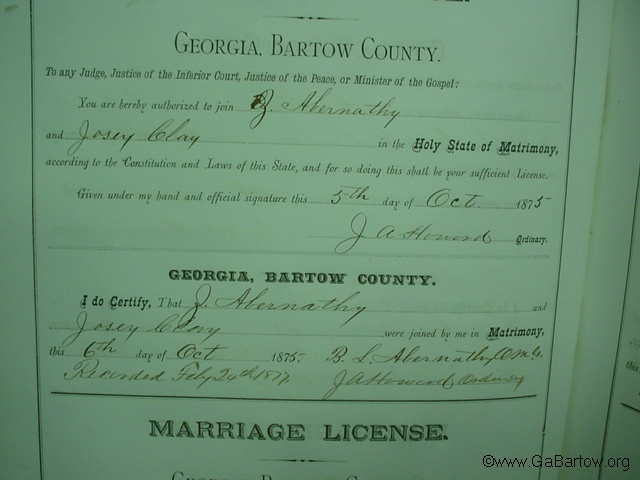 GEORGIA, BARTOW COUNTY.
To any Judge, Justice of the Inferior Court, Justice of the Peace, or Minister of the Gospel:
You are hereby authorized to join Z. Abernathy
and Josey Clay in the Holy State of Matrimony,
according to the Constitution and Laws of this State, and for so doing this shall be your sufficient License.
Given under my hand and official signature this 5th day of Oct. 1875
J A Howard Ordinary.
GEORGIA, BARTOW COUNTY.
I do Certify, That Z. Abernathy and
Josey Clay were joined by me in Matrimony,
this 6th day of Oct 1875. B. L. Abernathy
Recorded Feby 24th 1877 J A Howard Ordinary
MARRIAGE LICENSE.
©www.GaBartow.org